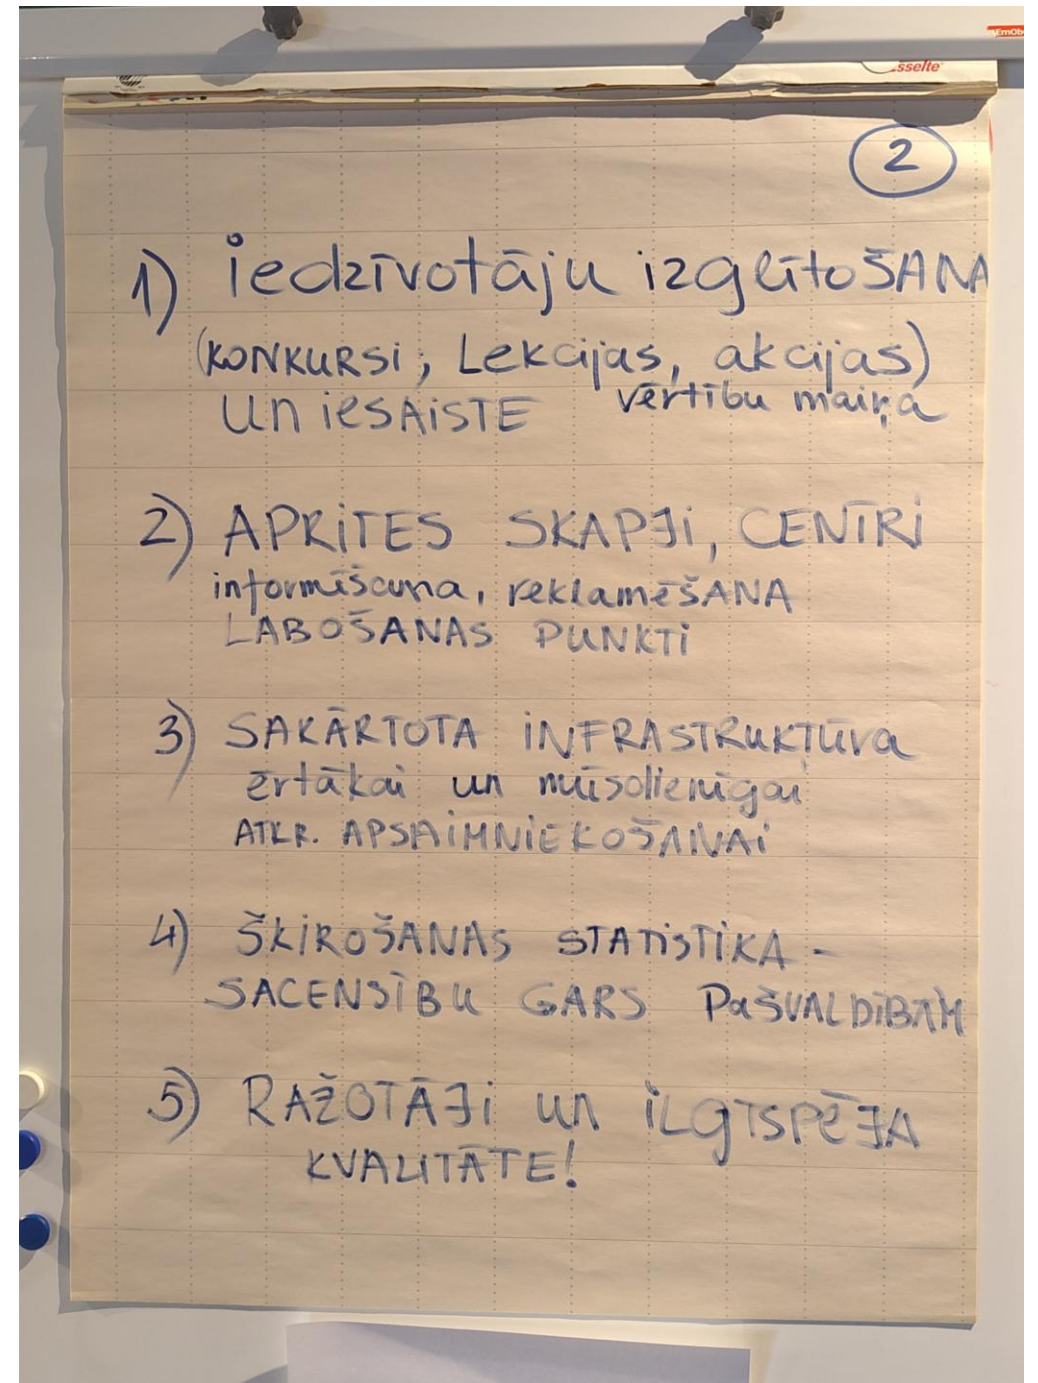 sselte
2
1) iedzīvotāju izglītoŠANA
(KONKURSI; Lekcijas, akcijas)
UN iESAiSTE vērtību maiņa
2) APRITES SKAPJI, CENTRI
informēšana, reklamēŠANA
LABOŠANAS PUNKTI
3) SAKĀRTOTA INFRASTRUKTŪRA
ērtākai un mūsdienīgai
ATKR. APSAIMNIEKOŠANAI
4) ŠĶIROŠANAS STATISTIKA -
SACENSĪBU GARS PAŠVALDĪBĀM
5) RAŽOTĀJI un ILGTSPĒJA
KVALITĀTE!